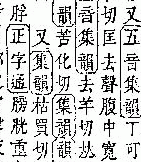 又五音集韻丁可
切匡去聲腹中寬
音集韻去羊切𠀤
韻苦化切集韻
又集韻枯買切
脬正字通膀胱重